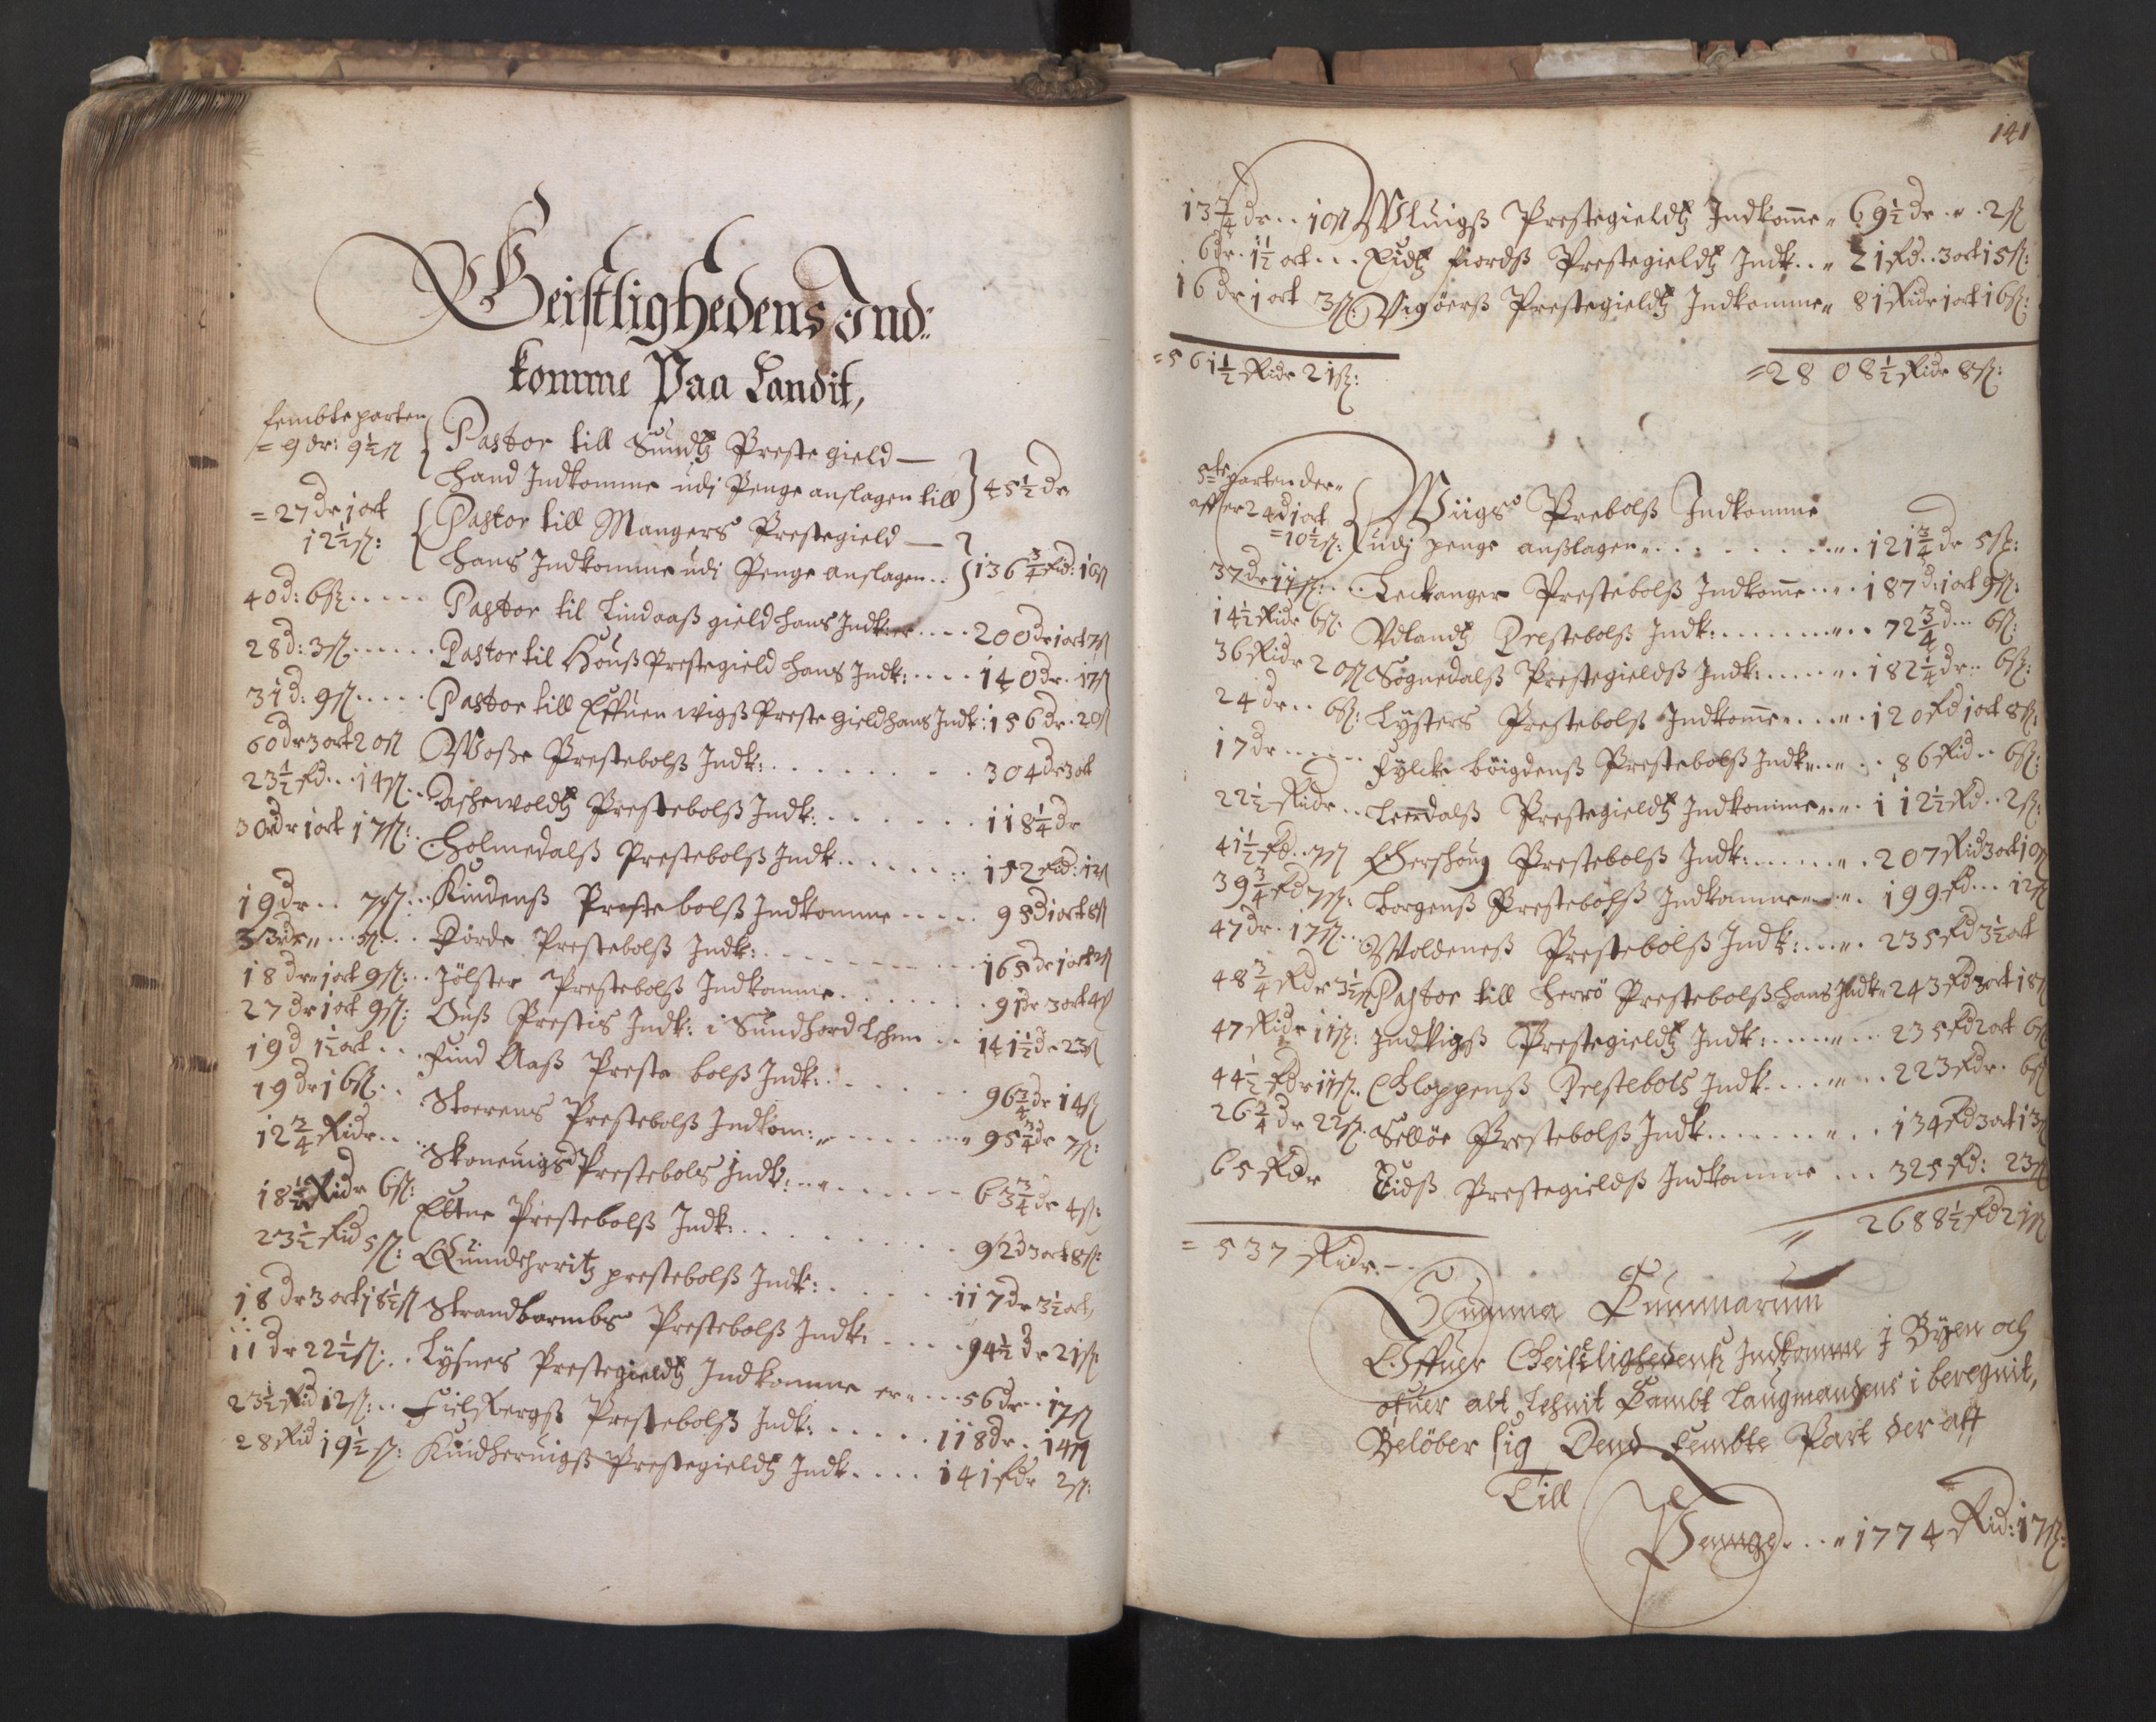 Geistlighedens Ind-
komme Paa Landit,
fembteparten
= 9 dr: 9½ ß Pastor till Sundtz Preste gield —
Hand Indkomme udi Penge anslagen till 45½ dr
= 27 dr 1 ort Pastor till Mangers Prestegield —
12½ ß: Hans Indkomme udi Penge anslagen .. 136¾ Rd: 16 ß
40 d: 6 ß ..... Pastor til Lindaaß gield hans Indk: er .... 200 dr 1 ort 7 ß
28 d: 3 ß ...... Pastor til Houß Prestegield hans Indk: .... 140 dr. 17 ß
31 d: 9 ß ..... Pastor till Effuen wigß Preste gield hans Indk: 156 dr. 20 ß
60 dr 3 ort 20 ß Wosße Prestebolß Indk: ........ 304 dr 3 ort
23½ Rd... 14 ß.. Daschewoldtz Prestebolß Indk: ....... 118¼ dr
30 dr 1 ort 17 ß: . Holmedalß Prestebolß Indk ........ 152 Rd: 12 ß
19 dr .. 7 ß ... Kindenß Preste bolß Indkomme ..... 95 d 1 ort 8 ß
33 dr „ ... ß: .. Förde Prestebolß Indk: .......... 165 dr 1 ort ß
18 dr „ 1 ort 9 ß: .. Jölster Prestebolß Indkomme ....... 91 dr 3 ort 4 ß
27 dr 1 ort 9 ß: Ouß Prestis Indk: i Sundhord Lehnn .. 141½ dr 23 ß
19 d 1½ ort .. . Find Aaß Preste bolß Indk: ...... 96¾ dr 14 ß
19 dr 16 ß: . . Stoerens Prestebolß Indkom: „ ...... „ 95¾ dr 7 ß:
12¾ Ridr . . .. Skoneuigs Prestebols Indk: ........ 63¾ dr 4 ß:
18½ Ridr 6 ß: Ettne Prestebolß Indk: ......... 92 d 3 ort 8 ß:
23½ Rid 5 ß: Quindherritz prestebolß Indk: ...... 117 dr 3½ ort,
18 dr 3 ort 18½ ß Strandbarmbs Prestebolß Indk: ..... 94½ dr 21 ß
11 dr 22½ ß: .. Lysnes Prestegieldtz Indkomme er „ ... 56 dr .. 17 ß
23½ Rid 12 ß: .. Fielßbergß Prestebolß Indk: ..... 118 dr . 14 ß
28 Rid 19½ ß: Kindheruigß Prestegieldtz Indk .... 141 Rdr 2 ß:
141
13¾ dr .. 10 ß Wluigß Prestegieldtz Indkomme „ 69½ dr „ . 2 ß
6 dr. 1½ ort ... Eidtz fiordß Prestegieldtz Indk .. „ 21 Rd .. 3 ort 15 ß:
16 dr 1 ort 3 ß: Vigöerß Prestegieldtz Indkomme „ 81 Ridr 1 ort 16 ß:
= 561½ Ridr 21 ß: = 2808½ Ridr 8 ß:
5te parten der „
aff er 24 d 1 ort Wiigs Prebolß Indkomme
= 10½ ß: udj penge anßlagen „ ........ „. 121¾ dr 5 ß:
37 dr 11 ß: .. Leckanger Prestebolß Indkomme .. „ . 187 d: 1 ort 9 ß:
14½ Ridr 6 ß: Vdlandtz Prestebolß Indk: ........ „.. 72¾ d ... 6 ß:
36 Ridr 20 ß Sognedalß Prestegieldß Indk: ..... „. 182¼ dr .. 6 ß:
24 dr .. 6 ß: Lysters Prestebolß Indkomme .... „. 120 Rd 1 ort 8 ß:
17 dr ....... Fylcke böigdenß Prestebolß Indk „ .. „ .. 86 Rid .. 6 ß:
22½ Ridr .. Leerdalß Prestegieldtz Indkomme „. „. 112½ Rd .. 2 ß:
41½ Rd .. 7 ß Gershoug Prestebolß Indk: ...... „. 207 Rid 3 ort 10 ß
39¾ Rd 7 ß: Borgenß Prestebolß Indkomme „ .. „. 199 Rd ... 12 ß
47 dr . 17 ß .. Woldeneß Prestebolß Indk: ... „. 235 Rd 3½ ort
48¾ Rdr 3½ ß Pastor till Herrö Prestebolß hans Indk „ 243 Rd 3 ort 18 ß
47 Ridr 11 ß: Indvigß Prestegieldtz Indk: ..... „.. 235 Rd 2 ort 6 ß
44½ Rdr 11 ß .. Gloppenß Prestebols Indk .... „ .. 223 Rdr . 6 ß
26¾ dr 22 ß: Selöe Prestebolß Indk ....... „ .. 134 Rd 3 ort 13 ß
65 Rdr Eidß Prestegieldß Indkomme ... 325 Rd: 23 ß
„ 2688½ Rd 21 ß
= 537 Ridr. —
Summa Summarum
Offuer Geistlighedens Indkomme J Byen och
ofuer alt Lehnit Sambt Laugmandens i beregnit,
Belöber sig Dend fembte Part der aff
Till
Penge ... „ 1774 Rid: 17 ß: